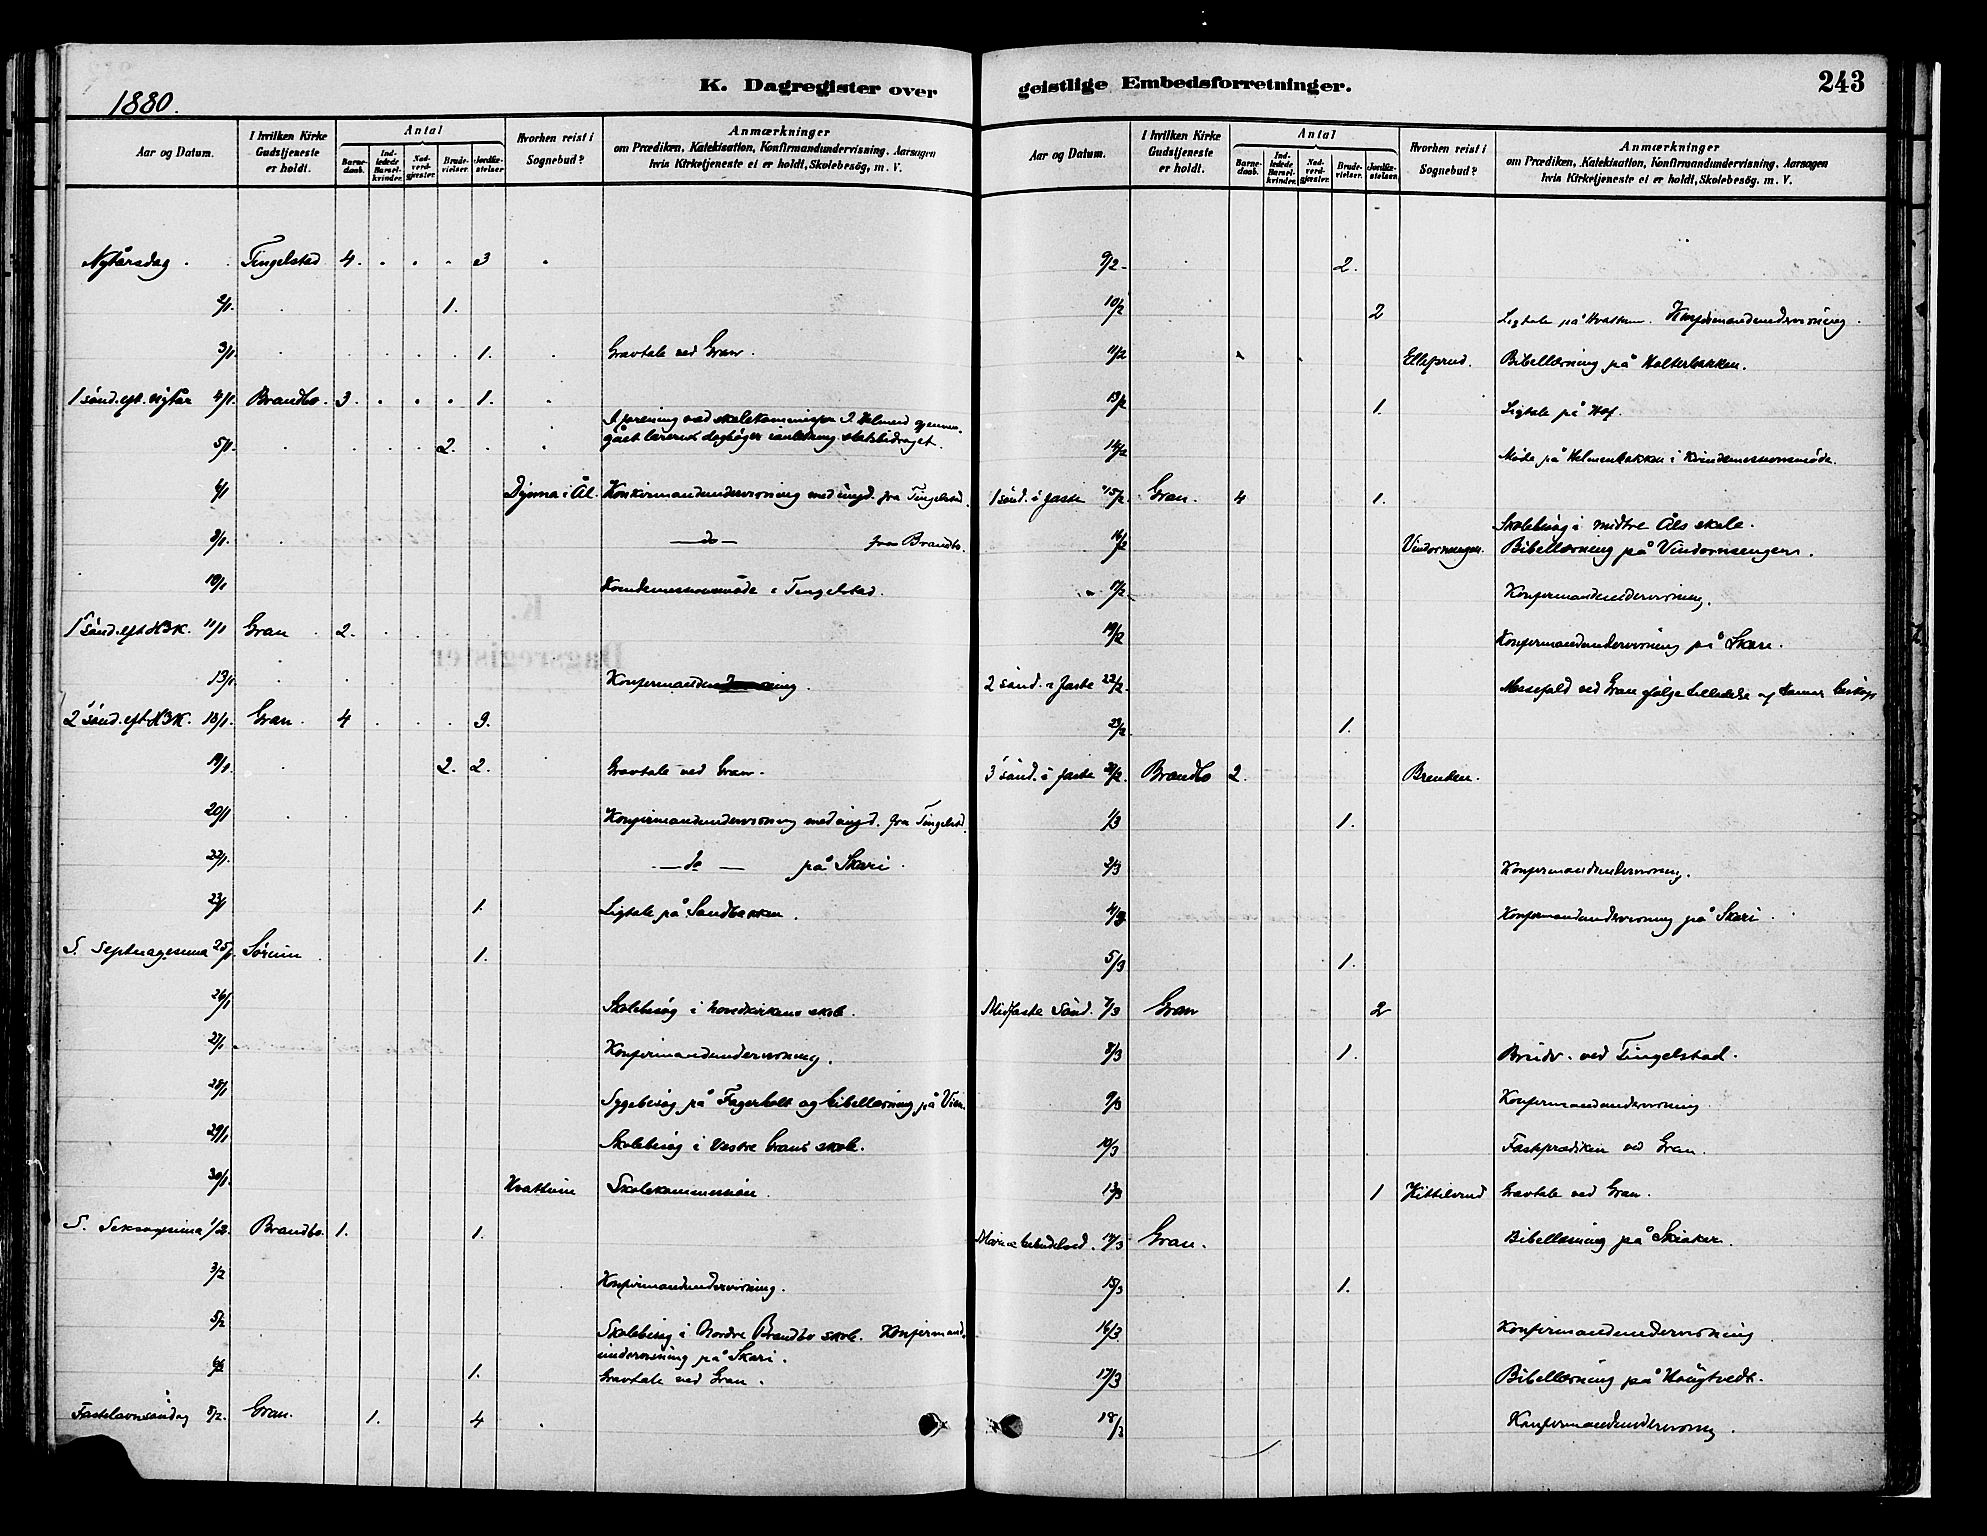 1880.
K. Dagregister over
Aar og Datum. I hvilken Kirke Gudstjeneste er holdt. Antal Barnedaab. Indledede Barselkvinder. Nadverdgjæster. Brudevielser. Jordfæstelser. Hvorhen reist i Sognebud? Anmærkninger om Prædiken, Katekisation, Konfirmandundervisning. Aarsagen hvis Kirketjeneste ei er holdt, Skolebesøg, m. V.
Nytårsdag . . Tingelstad 4. . . . 3 .
2/1. . . . . . 1.
3/1. . . . . . . 1. . Gravtale ved Gran.
1 sønd. eft. nytår 4/1. Brandbo. 3. . . . 1. .
I forening med skolekommission gjennem-
5/1. . . . . . 2. . . gået lærernes dagbøger i anledning statsbidraget.
6/1 Dynna i Ål. Konfirmandundervisning med ungd. fra Tingelstad.
8/1. — do — fra Brandbo.
10/1 Kvindemissionsmøde i Tingelstad.
1 sønd. eft H3K. 11/1 Gran . 2. . . . .
13/1. Konfirmandundervisning.
2 sønd. eft H3K. 18/1. Gran. 4 . . . 9.
19/1. . 2. 2. Gravtale ved Gran.
20/1 . Konfirmandundervisning med ungd. fra Tingelstad
22/1. — do — på Skari.
23/1 1. Ligtale på Sandbakken.
S. Septuagesima 25/1. Sørum 1.
26/1 Skolebesøg i Hovedkirkens skole.
27/1. Konfirmandundervisning.
28/1 Sygebesøg på Fagerholt og bibellæsning på Vien.
29/1 Skolebesøg i Vestre Grans skole.
30/1. Hvattum Skolekommission.
S. Seksagesima 1/2. Brandbo. 1. 1.
3/2 Konfirmandundervisning.
5/2 Skolebesøg i Nordre Brandbo skole. Konfirmand.
undervisning på Skari.
6/2 1. Gravtale ved Gran.
Fastelavnssøndag 8/2. Gran. 1. 4 .
geistlige Embedsforretninger.
243
Aar og Datum. I hvilken Kirke Gudstjeneste er holdt. Antal Barnedaab. Indledede Barselkvinder. Nadverdgjæster. Brudevielser. Jordfæstelser. Hvorhen reist i Sognebud? Anmærkninger om Prædiken, Katekisation, Konfirmandundervisning, Aarsagen hvis Kirketjeneste ei er holdt, Skolebesög. m. V.
9/2. . 2.
10/2 2 Ligtale på Hvattum. Konfirmandundervisning.
11/2 Ellefsrud. Bibellæsning på Holterbakken.
13/2 1. Ligtale på Hof.
14/2 Møde på Helmenbakken i Kvindemissionsmøde.
1 sønd. i faste 15/2. Gran. 4 1.
Skolebesøg i midtre Åls skole.
16/2 Vindornsengen. Bibellæsning på Vindornsengen.
17/2 Konfirmandundervisning.
19/2 Konfirmandundervisning på Skari.
2 sønd. i faste 22/2. Messefald ved Gran ifølge tilladelse af biskop
23/2. 1.
3 sønd. i faste Brandbo 2. Brenten.
1/3 1.
2/3 Konfirmandundervisning.
4/3 Konfirmandundervisning på Skari.
5/3 1.
Midfaste Sønd. 7/3 Gran 2
8/3 1. Brudv. ved Tingelstad.
9/3 Konfirmandundervisning
10/3 Fasteprædiken ved Gran.
13/3 1 Kittilsrud Gravtale ved Gran.
Mariæ bebudelsesd. 14/3 Gran. Bibellæsning på Skiaker.
15/3 1.
16/3 Konfirmandundervisning
17/3 Bibellæsning på Haugtvedt.
18/3 Konfirmandundervisning.